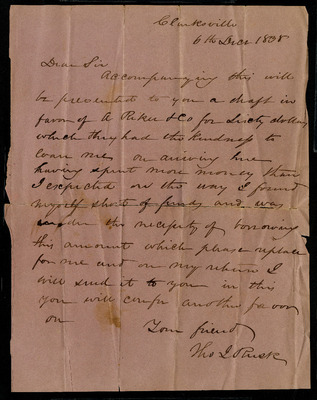 Clarksville
6th Decr 1838
Dear Sir
Accompanying this will
be presented to you a draft in
favor of A Parker & Co for Sixty dollars
which they had the kindness to
loan me on arriving here
having spent more money than
I expected on the way I found
myself short of funds and was
under the necesity of borrowing
this amount which please replace
for me and on my return I
will send it to you in this
you will confer another favor
on
Your friend
Tho J Rusk